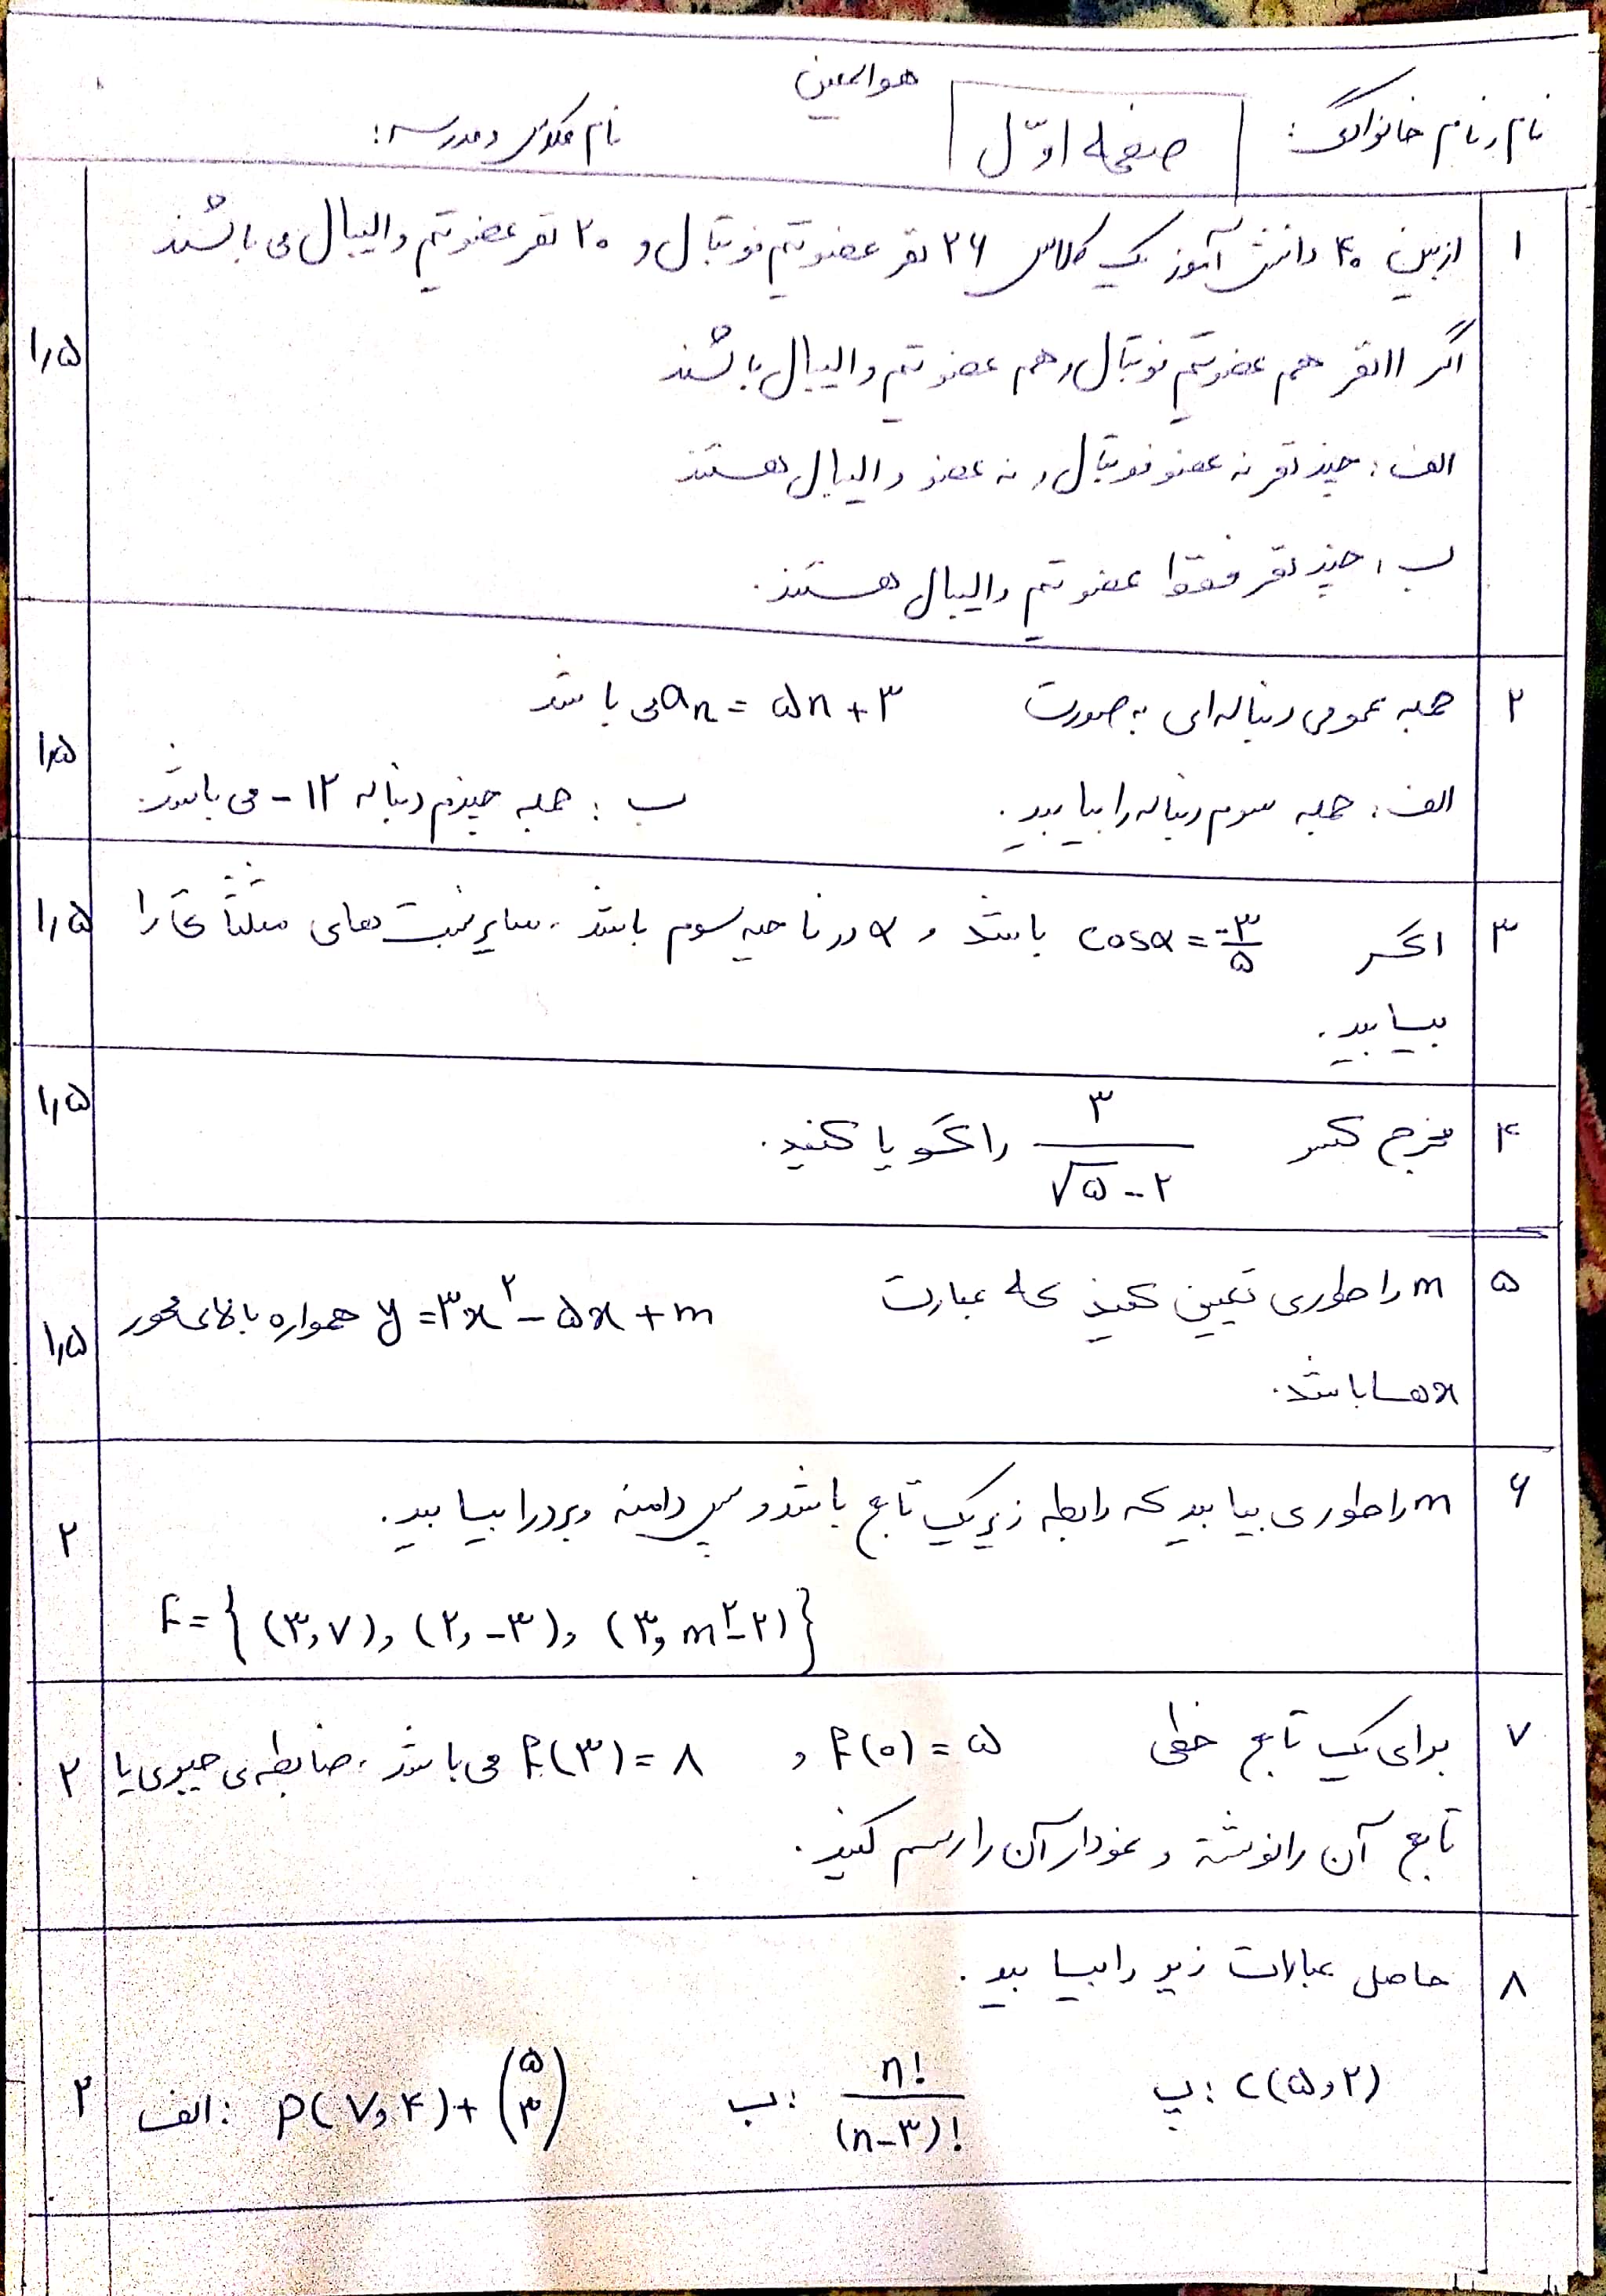 هوالمعین
نام و نام خانوادگی: صفحه اوّل نام کلاس و مدرسه:
۱ از بین ۴۰ دانش آموز یک کلاس ۲۶ نفر عضو تیم فوتبال و ۲۰ نفر عضو تیم والیبال می باشند
اگر ۱۱ نفر هم عضو تیم فوتبال و هم عضو تیم والیبال باشند ۱٫۵
الف: چند نفر نه عضو فوتبال و نه عضو والیبال هستند
ب: چند نفر فقط عضو تیم والیبال هستند.
۲ جمله عمومی دنباله ای به صورت aₙ = ۵n + ۳ می باشد ۱٫۵
الف: جمله سوم دنباله را بیابید. ب: جمله چندم دنباله ۱۲- می باشد.
۳ اگر cosα = -۳/۵ باشد و α در ناحیه سوم باشد، سایر نسبت های مثلثاتی را ۱٫۵
بیابید.
۴ مخرج کسر ۳/(√۵ - ۲) را گویا کنید. ۱٫۵
۵ m را طوری تعیین کنید که عبارت y = ۳x² - ۵x + m همواره بالای محور ۱٫۵
xها باشد.
۶ m را طوری بیابید که رابطه زیر یک تابع باشد و سپس دامنه و برد را بیابید. ۲
f = { (۳,۷), (۲,-۳), (۳, m²-۲) }
۷ برای یک تابع خطی f(۰) = ۵ و f(۳) = ۸ می باشد، ضابطه ی جبری یا ۲
تابع آن را نوشته و نمودار آن را رسم کنید.
۸ حاصل عبارات زیر را بیابید.
پ: C(۵,۲) ب: n!/(n-۳)! الف: P(۷,۴) + (۵ ۳) ۲